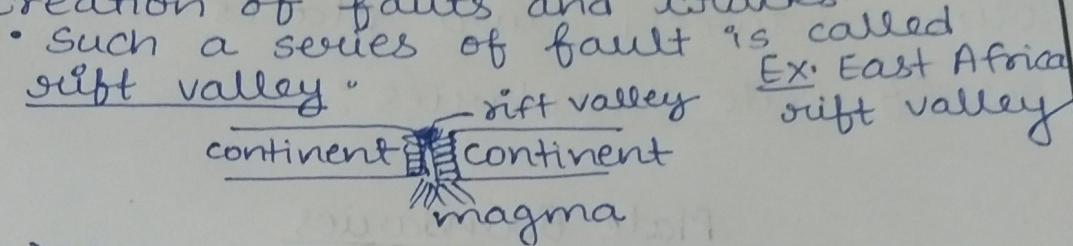 creation of faults and
• Such a series of fault is called
rift valley.
Ex. East Africa
rift valley
rift valley
continent continent
magma